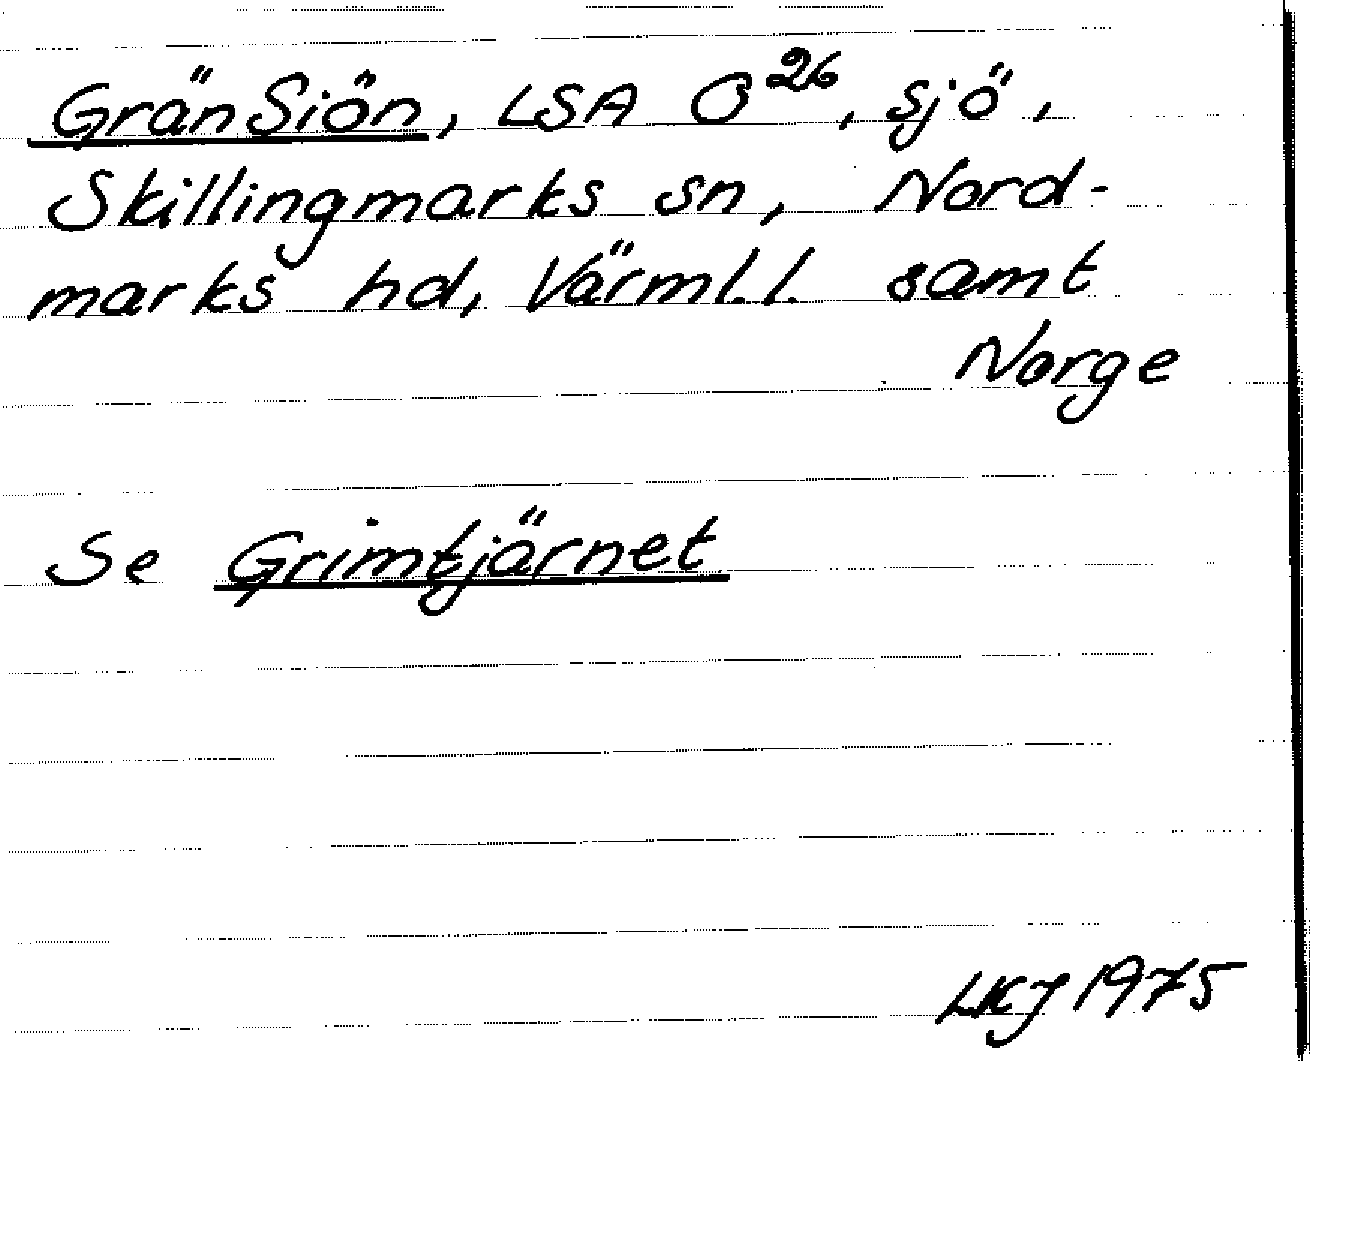 GränSiön, LSA O²⁶, sjö,
Skillingmarks sn, Nord-
marks hd, Värml. l. samt
Norge
Se Grimtjärnet
LKJ 1975